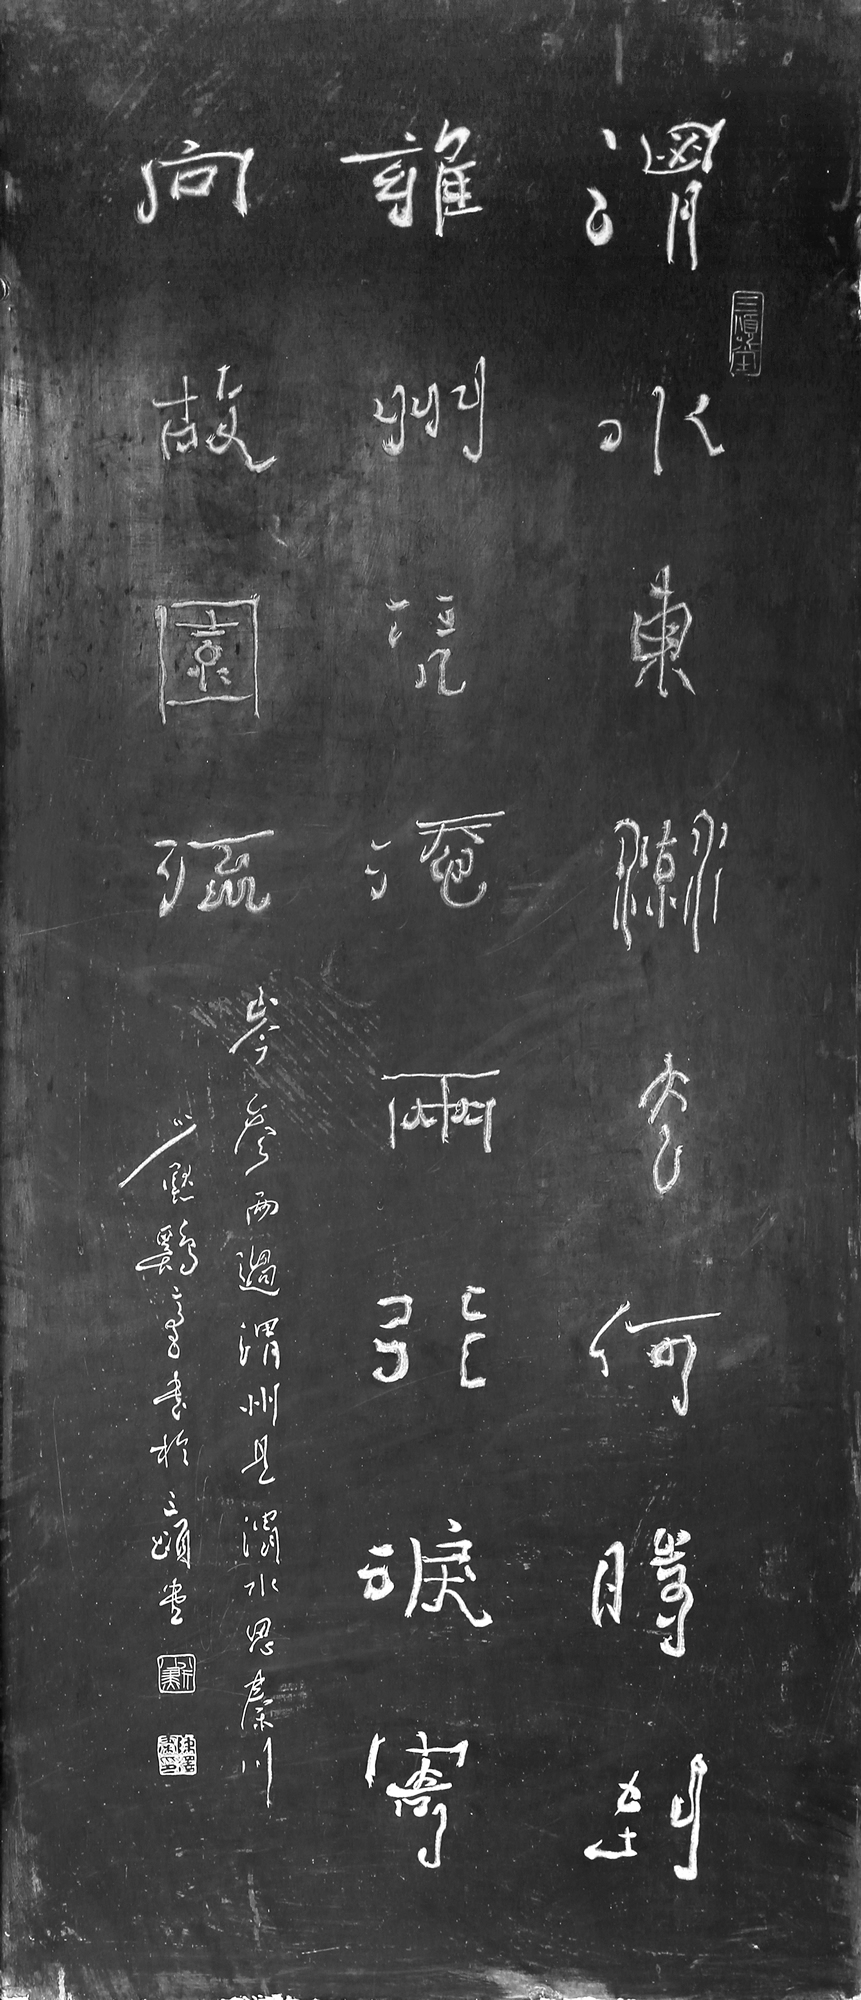 三頌堂
渭水東流去何時到
雍州凭添兩行淚寄
向故園流
岑參西過渭州見渭水思秦川
書於三頌堂